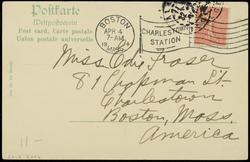 Postkarte
Weltpostverein
Post card, Carte postale
Union postale universelle
BOSTON
APR 4
7-AM
CHARLESTOWN
STATION
Miss Edie Fraser
81 Chapman St.
Charlestown
Boston, Mass.
America
11-